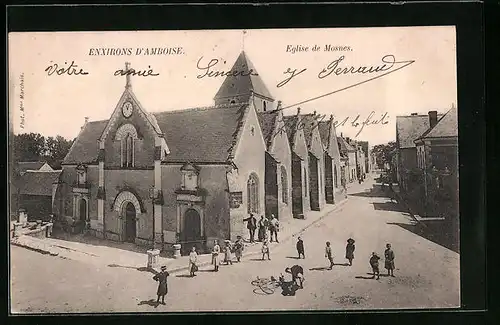 ENXIRONS D'AMBOISE.
Eglise de Mosnes.
Votre amie Sincère y Perraud
Phot. Mme Marchais.